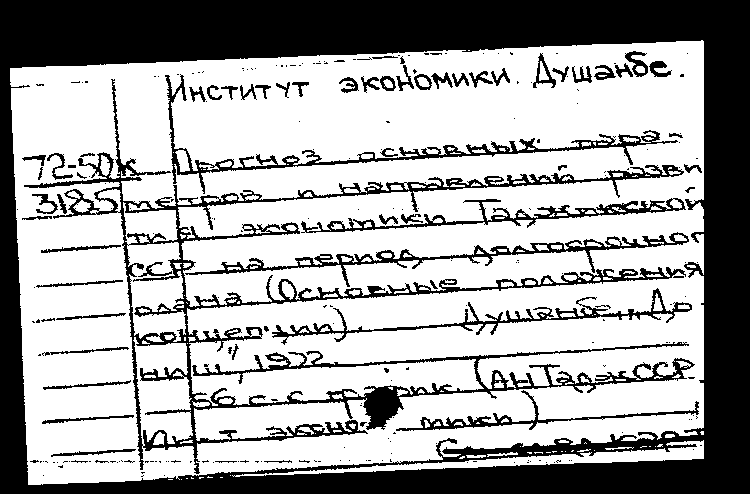 Институт экономики. Душанбе.
72-50к Прогноз основных пара-
3185 метров и направлений разви
тия экономики Таджикской
ССР на период долгосрочног
плана (Основные положения
концепции). Душанбе, "До-
ниш", 1972.
56 с. с график. (АН ТаджССР.
Ин-т экономики)
См. след. карт